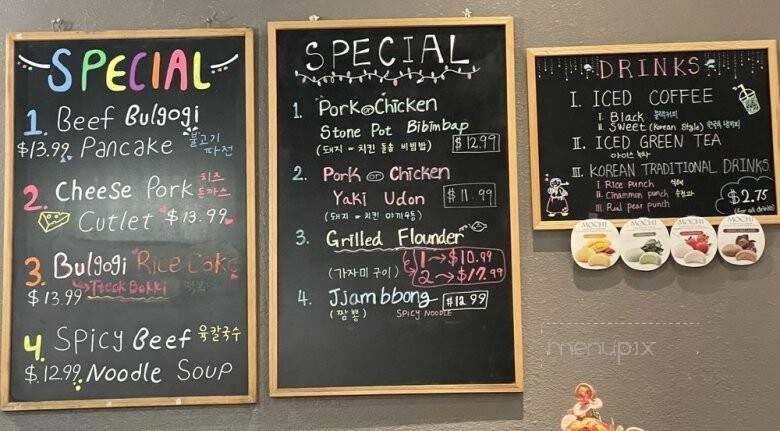 SPECIAL
1. Beef Bulgogi
$13.99 Pancake 불고기
파전
2. Cheese Pork 치즈
돈까스
Cutlet $13.99
3. Bulgogi Rice Cake
$13.99 Tteok Bokki
4. Spicy Beef 육칼국수
$12.99 Noodle Soup
SPECIAL
1. Pork or Chicken
Stone Pot Bibimbap
(돼지 - 치킨 돌솥 비빔밥) $12.99
2. Pork or Chicken
Yaki Udon $11.99
(돼지 - 치킨 야끼우동)
3. Grilled Flounder
(가자미 구이) 1 → $10.99
2 → $17.99
4. Jjambbong $12.99
(짬뽕) SPICY NOODLE
DRINKS
I. ICED COFFEE
I. Black 블랙커피
II. Sweet (Korean Style)
II. ICED GREEN TEA
아이스 녹차
III. KOREAN TRADITIONAL DRINKS
I. Rice Punch 식혜
II. Cinnamon punch 수정과
III. Real pear punch
$2.75
(for all drinks)
MOCHI MOCHI MOCHI MOCHI
menupix